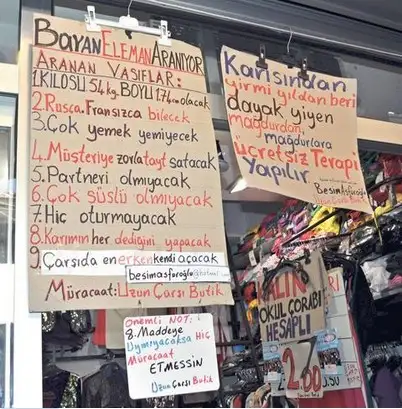 BAYAN ELEMAN ARANIYOR
ARANAN VASIFLAR:
1.KİLOSU 54kg. BOYU 174cm olacak
2.Rusca. Fransızca bilecek
3.Çok yemek yemiyecek
4.Müsteriye zorla tayt satacak
5.Partneri olmıyacak
6.Çok süslü olmıyacak
7.Hiç oturmayacak
8.Karımın her dediğini yapacak
9.Çarsıda en erken kendi açacak
Müracaat: Uzun Çarşı Butik
Karısından
yirmi yıldan beri
dayak yiyen
mağdurdan,
mağdurlara
ücretsiz Terapi
Yapılır
Besimasforoğlu
Uzun Çarsı Butik
Önemli NOT:!
8.Maddeye
Uymıyacaksa Hiç
Müracaat
ETMESSİN
Uzun Çarsı Butik
OKUL ÇORABI
HESAPLI